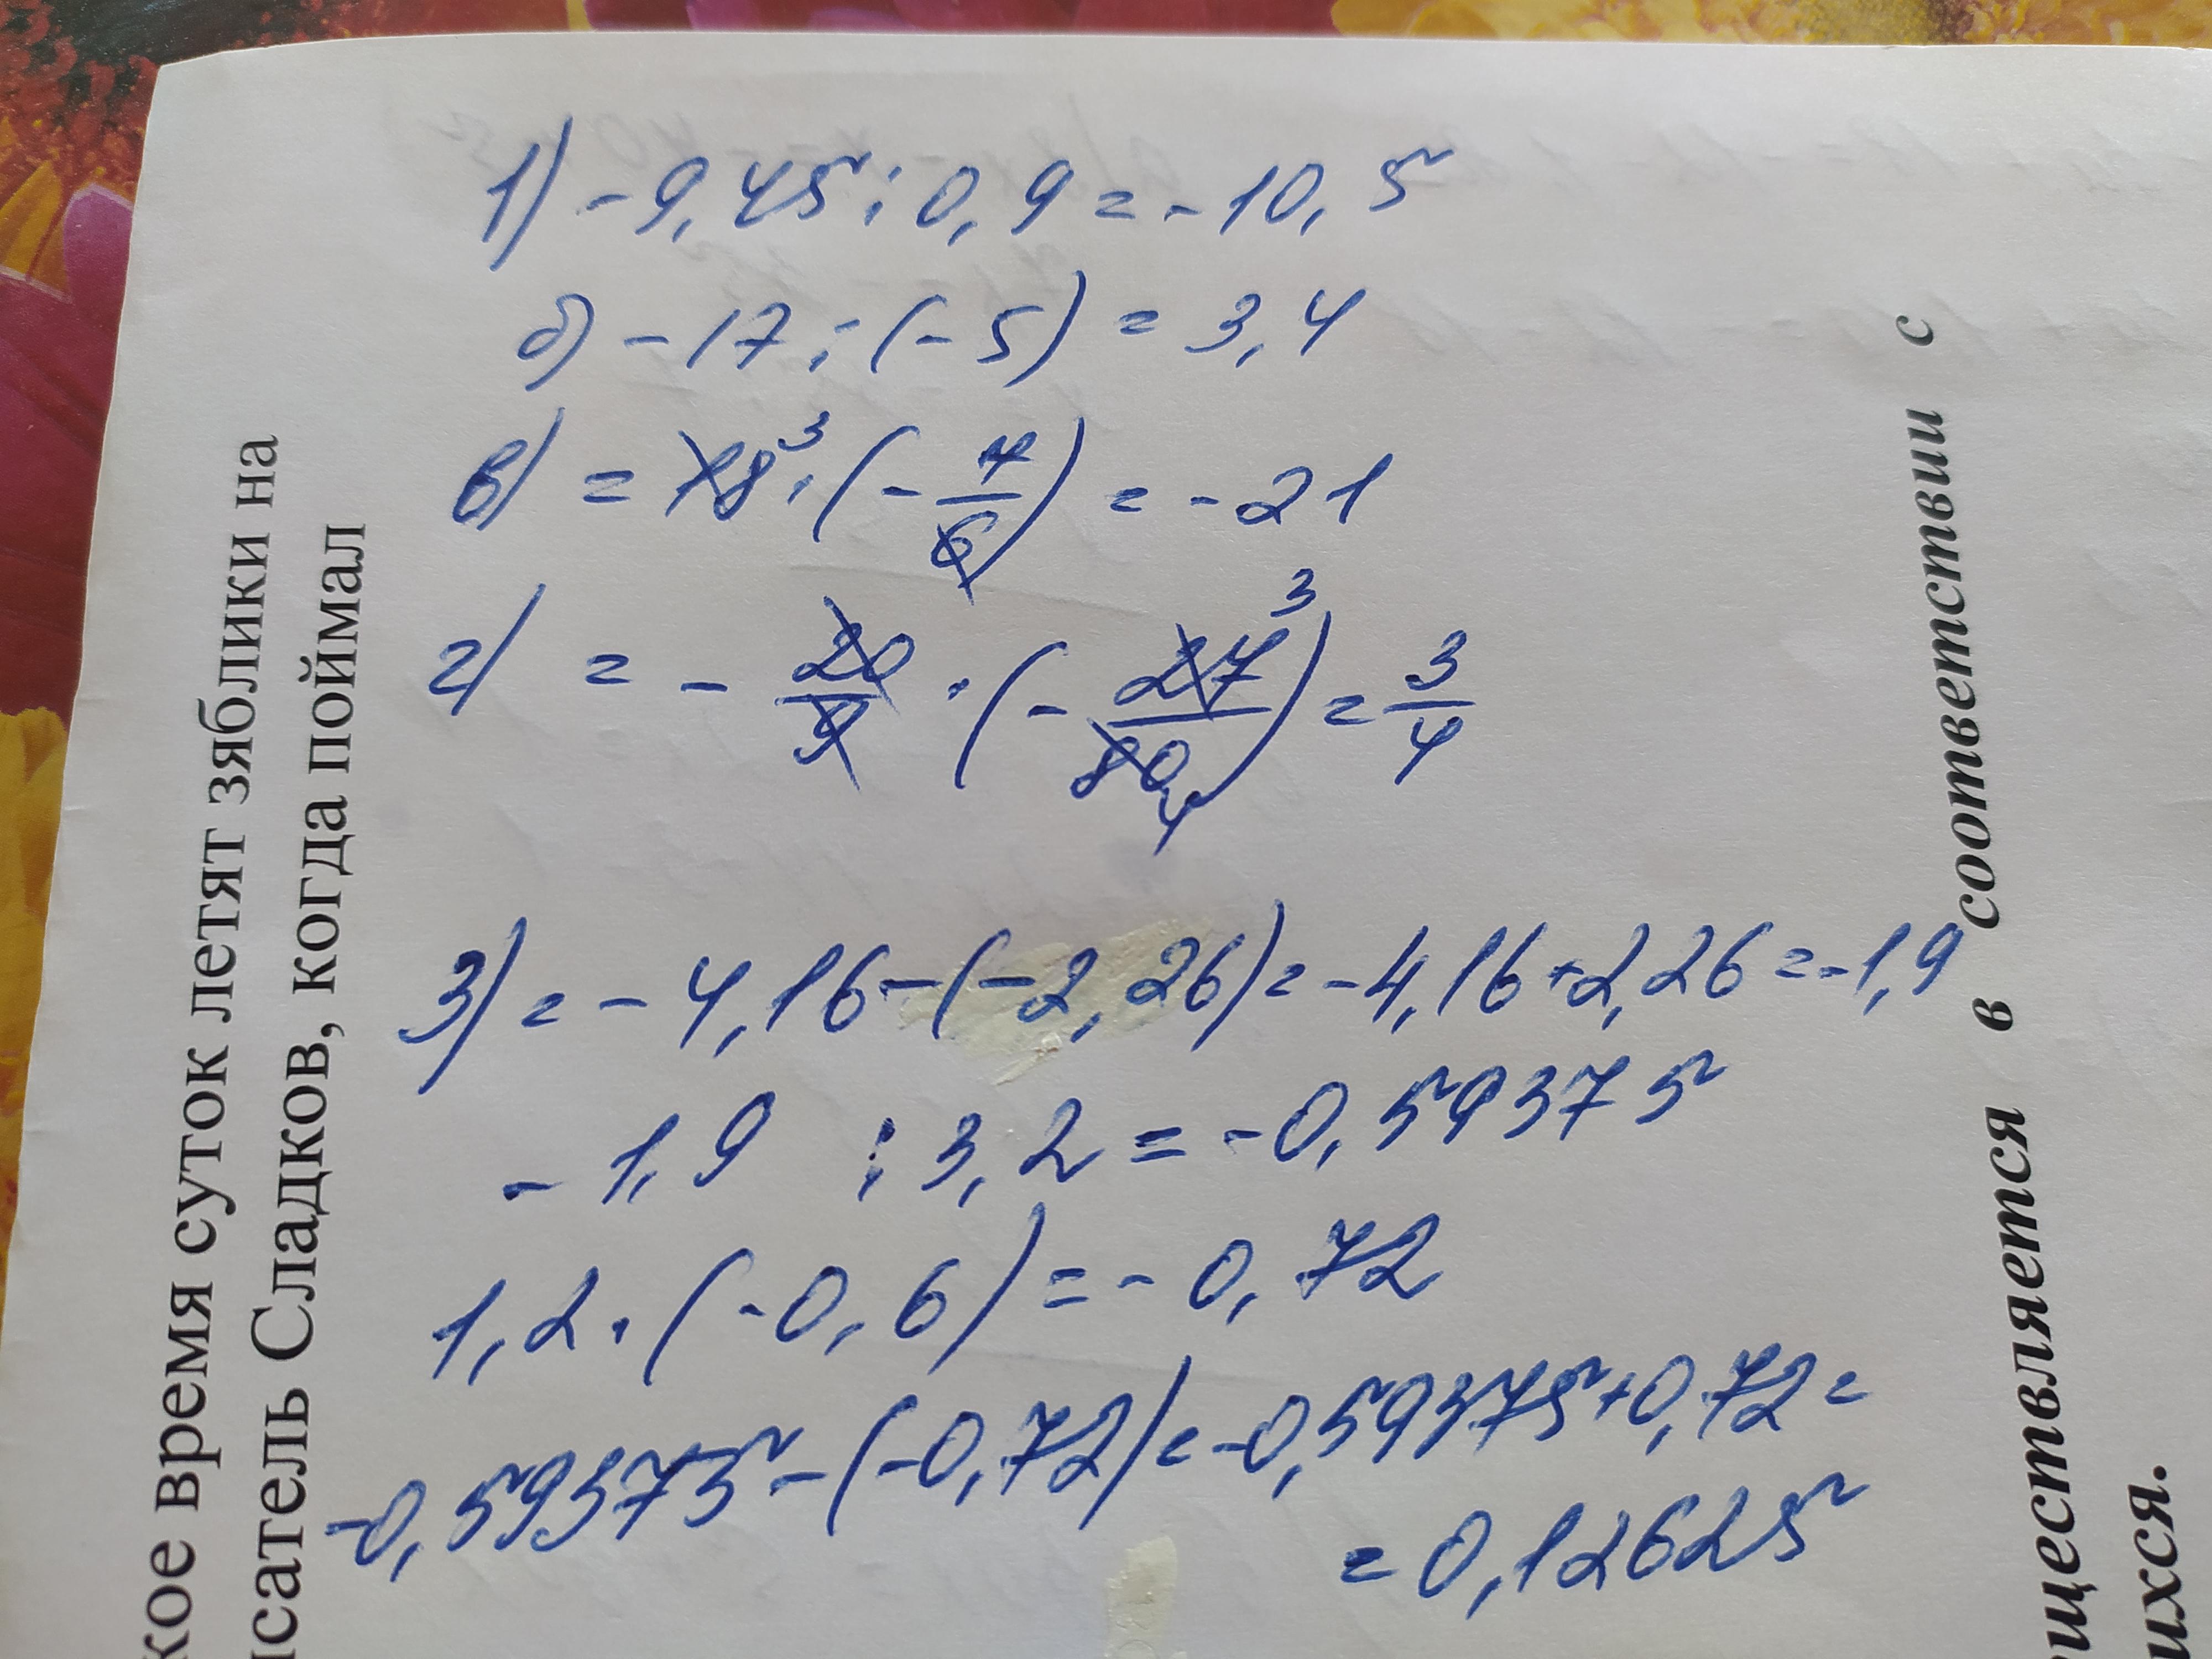 1) -9,45 : 0,9 = -10,5
б) -17 : (-5) = 3,4
в) = 18³ · (- 7/6) = -21
г) = - 20/9 · (- 27³/80₄) = 3/4
3) = -4,16 - (-2,26) = -4,16 + 2,26 = -1,9
-1,9 : 3,2 = -0,59375
1,2 · (-0,6) = -0,72
-0,59375 - (-0,72) = -0,59375 + 0,72 =
= 0,12625
кое время суток летят зяблики на
исатель Сладков, когда поймал
ществляется в соответствии с
ихся.